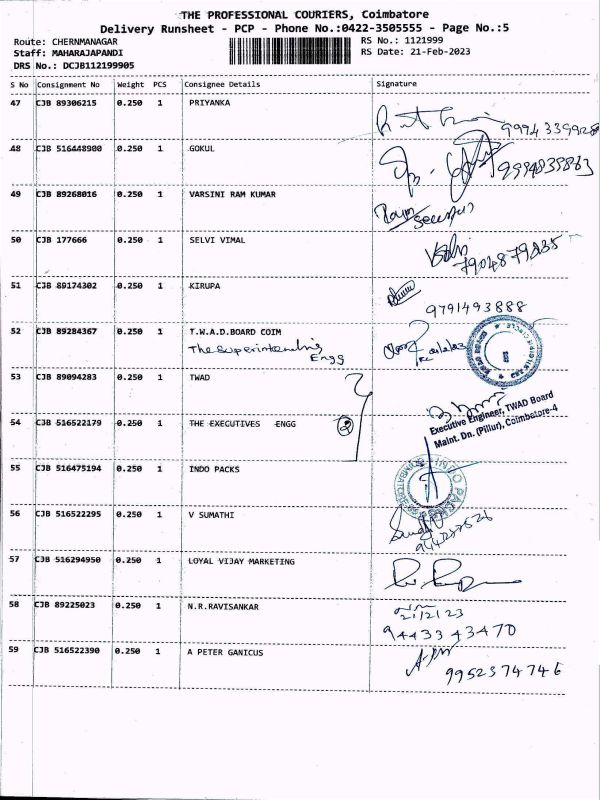 THE PROFESSIONAL COURIERS, Coimbatore
Delivery Runsheet - PCP - Phone No.:0422-3505555 - Page No.:5
Route: CHERNMANAGAR
RS No.: 1121999
Staff: MAHARAJAPANDI
RS Date: 21-Feb-2023
DRS No.: DCJB112199905
S No Consignment No Weight PCS Consignee Details Signature
47 CJB 89306215 0.250 1 PRIYANKA
9994339928
48 CJB 516448900 0.250 1 GOKUL
9994839883
49 CJB 89268016 0.250 1 VARSINI RAM KUMAR
50 CJB 177666 0.250 1 SELVI VIMAL
7904879835
51 CJB 89174302 0.250 1 KIRUPA
9791493888
52 CJB 89284367 0.250 1 T.W.A.D.BOARD COIM
The Superintending
Engg
53 CJB 89094283 0.250 1 TWAD
Executive Engineer, TWAD Board
Maint. Dn. (Pillur), Coimbatore-4
54 CJB 516522179 0.250 1 THE EXECUTIVES ENGG
2
55 CJB 516475194 0.250 1 INDO PACKS
56 CJB 516522295 0.250 1 V SUMATHI
57 CJB 516294950 0.250 1 LOYAL VIJAY MARKETING
58 CJB 89225023 0.250 1 N.R.RAVISANKAR
21/2/23
9443343470
59 CJB 516522390 0.250 1 A PETER GANICUS
9952374746